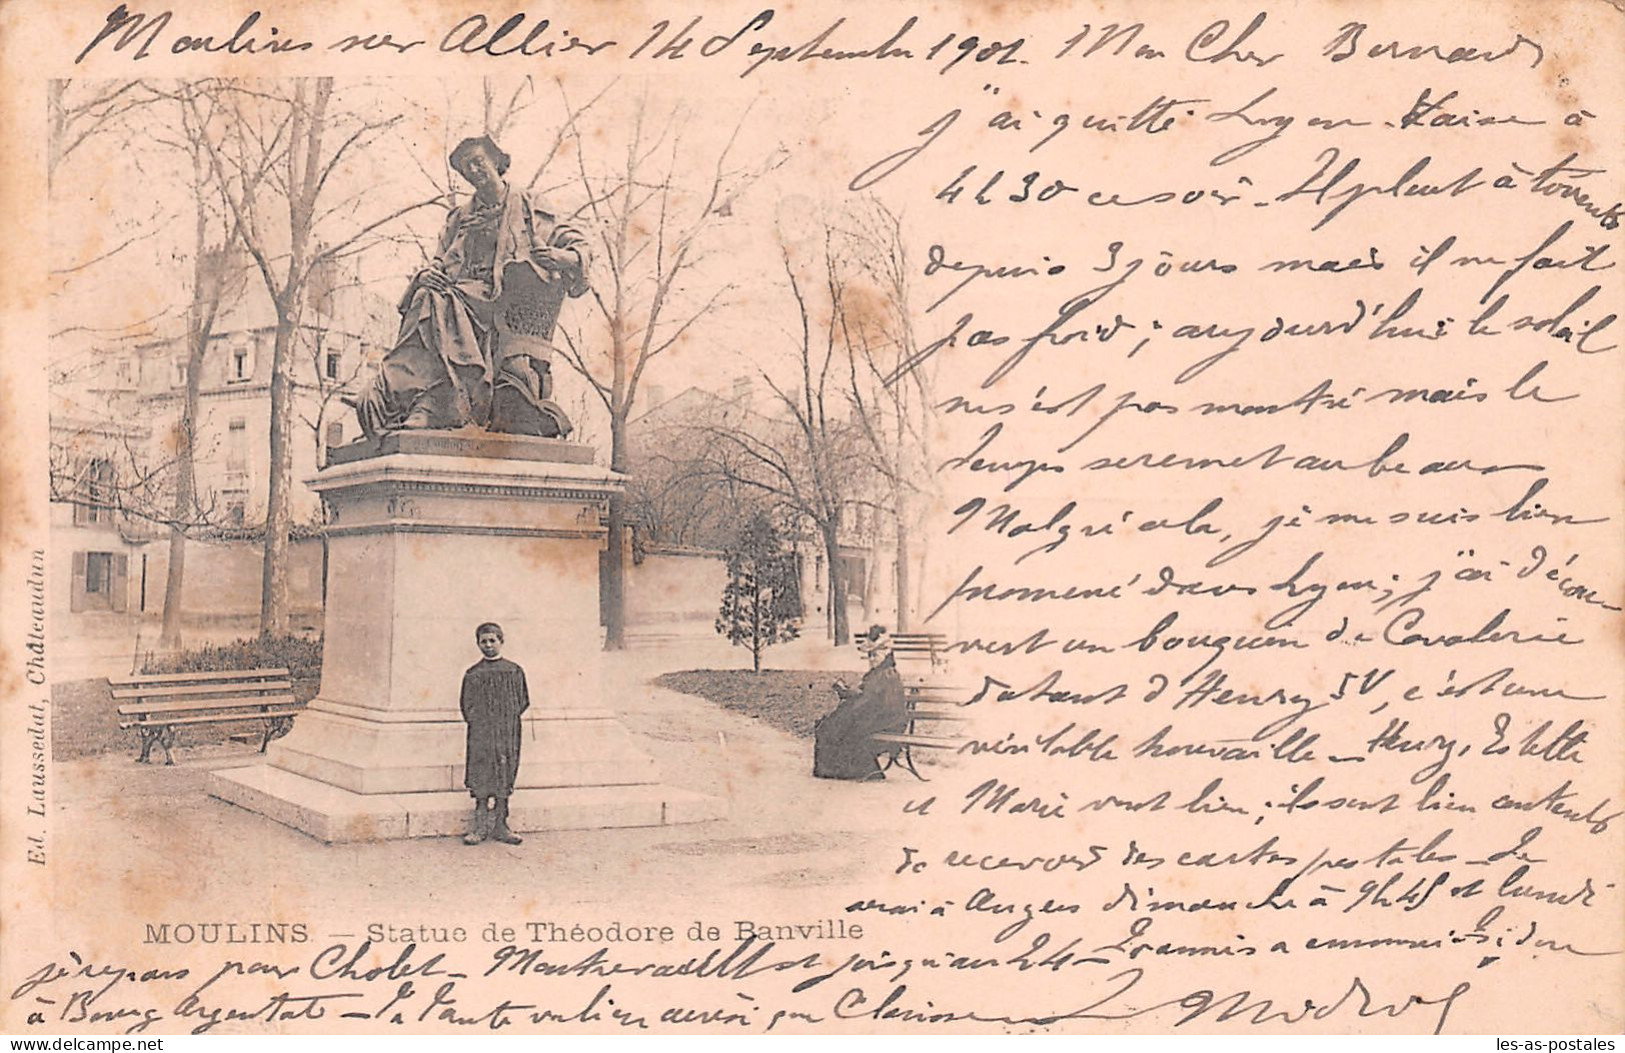 Moulins sur Allier 14 Septembre 1901. Mon Cher Bernard
j'ai quitté Lyon Vaise à
4h30 ce soir - Il pleut à torrents
depuis 3 jours mais il ne fait
pas froid ; aujourd'hui le soleil
ne s'est pas montré mais le
temps se remet au beau
Malgré cela, je me suis bien
promené dans Lyon ; j'ai décou-
vert un bouquin de Cavalerie
datant d'Henry IV, c'est une
véritable trouvaille - Henry, Estelle
et Marie vont bien ; ils sont bien contents
de recevoir des cartes postales - Je
serai à Angers dimanche à 9h45 et lundi
je repars pour Cholet - Montrevault et jusqu'au 24 -
à Bourg Argental - la Tante va bien aussi que Clarisse
MOULINS - Statue de Théodore de Banville
Ed. Laussedat, Châteaudun
les-as-postales.com